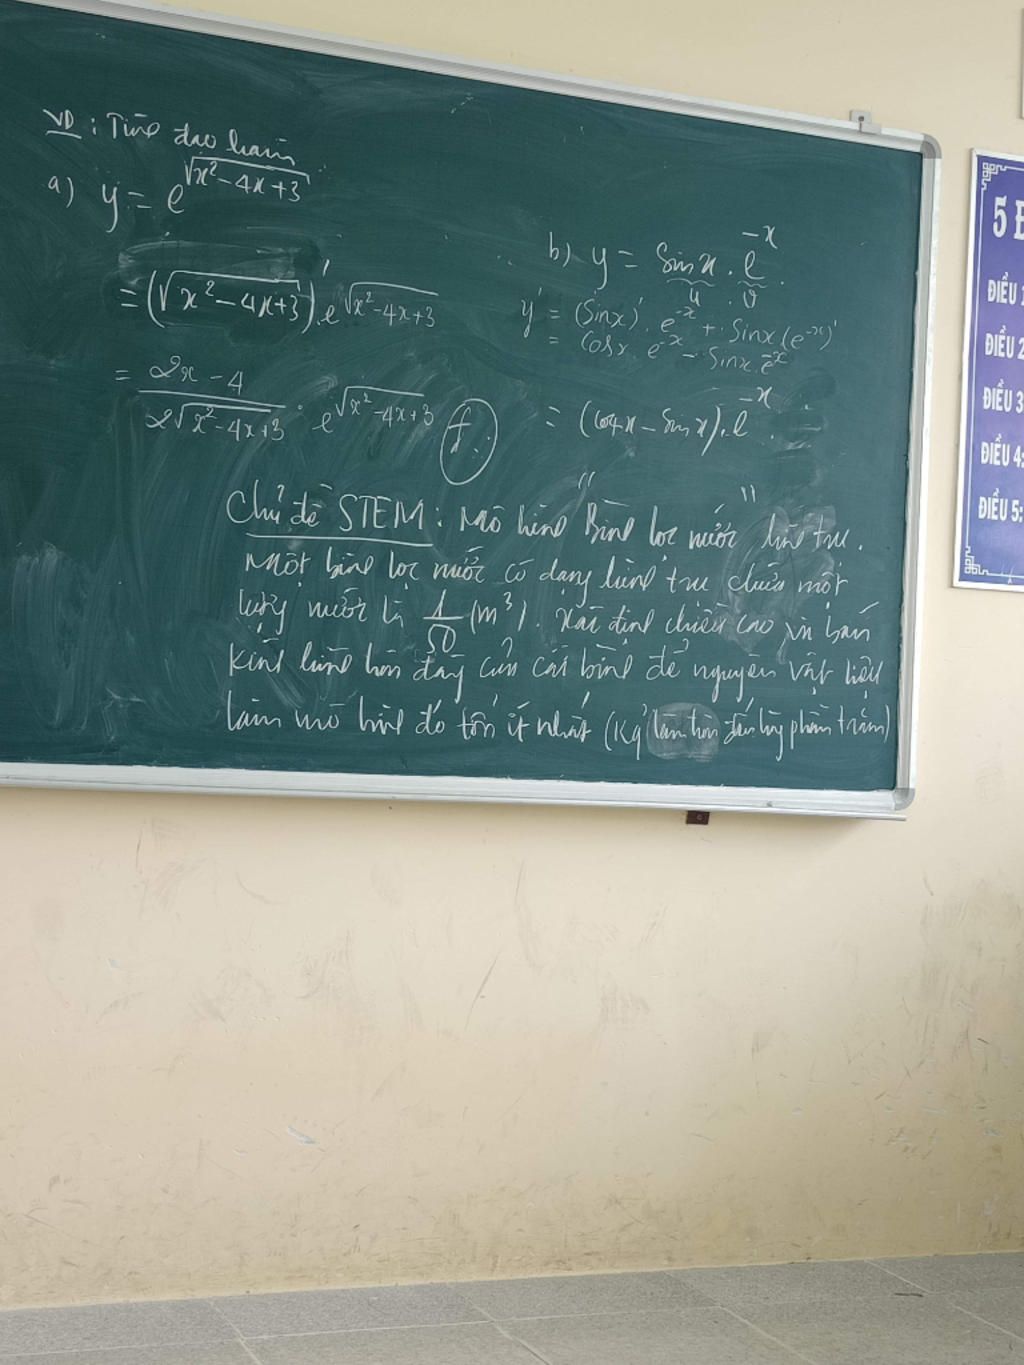 VD : Tính đạo hàm
a) y = e^{√(x²-4x+3)}
= (√(x²-4x+3))' . e^{√(x²-4x+3)}
= (2x-4)/(2√(x²-4x+3)) . e^{√(x²-4x+3)}
b) y = sinx . e^{-x}
u . v
y' = (sinx)' . e^{-x} + sinx (e^{-x})'
= cosx . e^{-x} - sinx . e^{-x}
= (cosx - sinx) . e^{-x}
Chủ đề STEM : Mô hình "Bình lọc nước" hình trụ.
Một bình lọc nước có dạng hình trụ chứa một
lượng nước là 1/50 (m³). Xác định chiều cao và bán
kính hình tròn đáy của cái bình để nguyên vật liệu
làm mô hình đó tốn ít nhất (Kq' làm tròn đến hàng phần trăm)
5 Đ
ĐIỀU 1
ĐIỀU 2
ĐIỀU 3
ĐIỀU 4:
ĐIỀU 5: